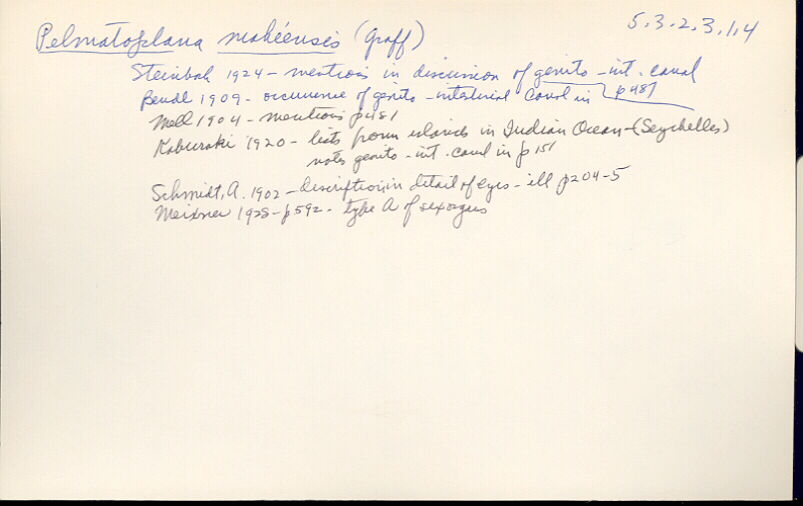 5.3.2.3.1.4
Pelmatoplana mahéensis (Graff)
Steinböh 1924 - mentions in discussion of genito - int. canal p 481
Bendl 1909 - occurrence of genito - intestinal canal in
Mell 1904 - mentions p 481
Kaburaki 1920 - lists from islands in Indian Ocean - (Seychelles)
notes genito - int. canal in p 151
Schmidt, A. 1902 - description in detail of eyes - ill p 204-5
Meixner 1928 - p 592 - type A of sex organs